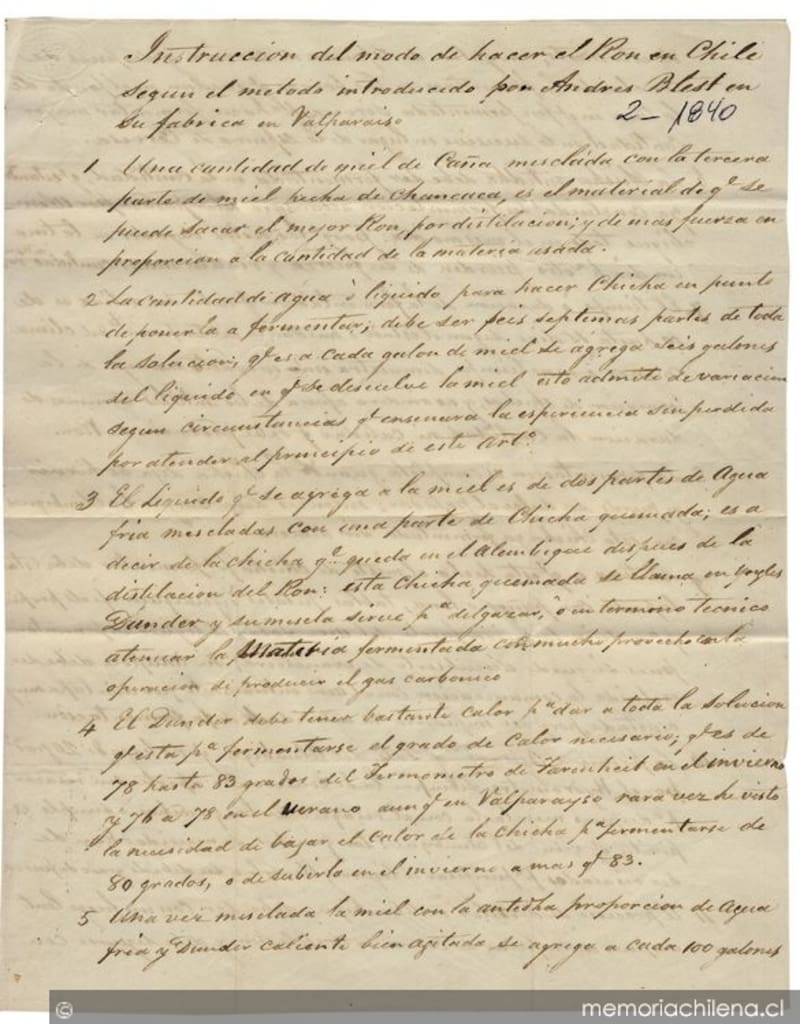 Instruccion del modo de hacer el Ron en Chile
segun el metodo introducido por Andres Blest en
su fabrica en Valparaiso
2- 1840
1 Una cantidad de miel de Caña mesclada con la tercera
parte de miel hecha de Chancaca, es el material de qe se
puede sacar el mejor Ron, por distilacion; y de mas fuerza en
proporcion a la cantidad de la materia usada.
2 La cantidad de agua ò liquido para hacer Chicha en punto
de ponerla a fermentar, debe ser seis septemas partes de toda
la solucion; qe es a cada galon de miel se agrega seis galones
del liquido en qe se desuelve la miel esto admite de variacion
segun circunstancias qe enseñara la esperiencia sin perdida
por atender al principio de este arto.
3 El Liquido qe se agrega a la miel es de dos partes de Agua
fria mescladas con una parte de Chicha quemada; es a
decir de la chicha qe queda en el Alembique despues de la
distilacion del Ron: esta Chicha quemada se llama en Yngles
Dunder y su mescla sirve pa delgazar, ò en termino tecnico
atenuar la Materia fermentada con mucho provecho en la
operacion de producir el gas carbonico
4 El Dunder debe tener bastante calor pa dar a toda la Solucion
qe esta pa fermentarse el grado de Calor necesario; qe es de
78 hasta 83 grados del Termometro de Farenheit en el invierno
y 76 a 78 en el verano aunqe en Valparayso rara vez he visto
la necesidad de bajar el Calor de la Chicha pa fermentarse de
80 grados, o de subirla en el invierno a mas qe 83.
5 Una vez mesclada la miel con la antedha proporcion de Agua
fria y Dunder caliente bien agitada se agrega a cada 100 galones
© memoriachilena.cl